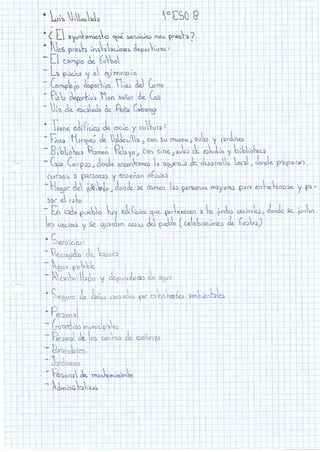 • Luis Villoslada 1º ESO B
• ¿El ayuntamiento qué servicios nos presta?
• Nos presta instalaciones deportivas:
- El campo de fútbol
- La piscina y el gimnasio
- Complejo deportivo Mies del Corro
- Pista deportiva Mar de
- Vía de escalada de Peña Cabarga
• Tiene edificios de ocio y cultura:
- Finca Marqués de Valdecilla, con su museo, aulas y jardines
- Biblioteca Ramón Pelayo, con cine, aulas de estudio y biblioteca
- Casa Corpas, donde encontramos la agencia de desarrollo local, donde preparan
cursos a personas y enseñan oficios
- Hogar del jubilado, donde se reunen las personas mayores para entretenerse y pa-
sar el rato
- En cada pueblo hay edificios que pertenecen a las juntas vecinales, donde se juntan
los vecinos y se guardan cosas del pueblo (celebraciones de fiestas)
• Servicios:
- Recogida de basura
- Agua potable
- Alcantarillado y depuradoras de agua
• Seguro de daños causados por catástrofes ambientales
• Personal
- Guardias municipales
- Personal de los centros de
- Barrenderos
- Jardineros
- Personal de mantenimiento
- Administrativos